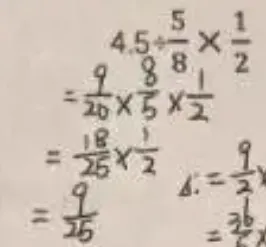 4.5÷5/8×1/2
=9/20×8/5×1/2
=18/25×1/2
=9/25
=9/2×
=36/